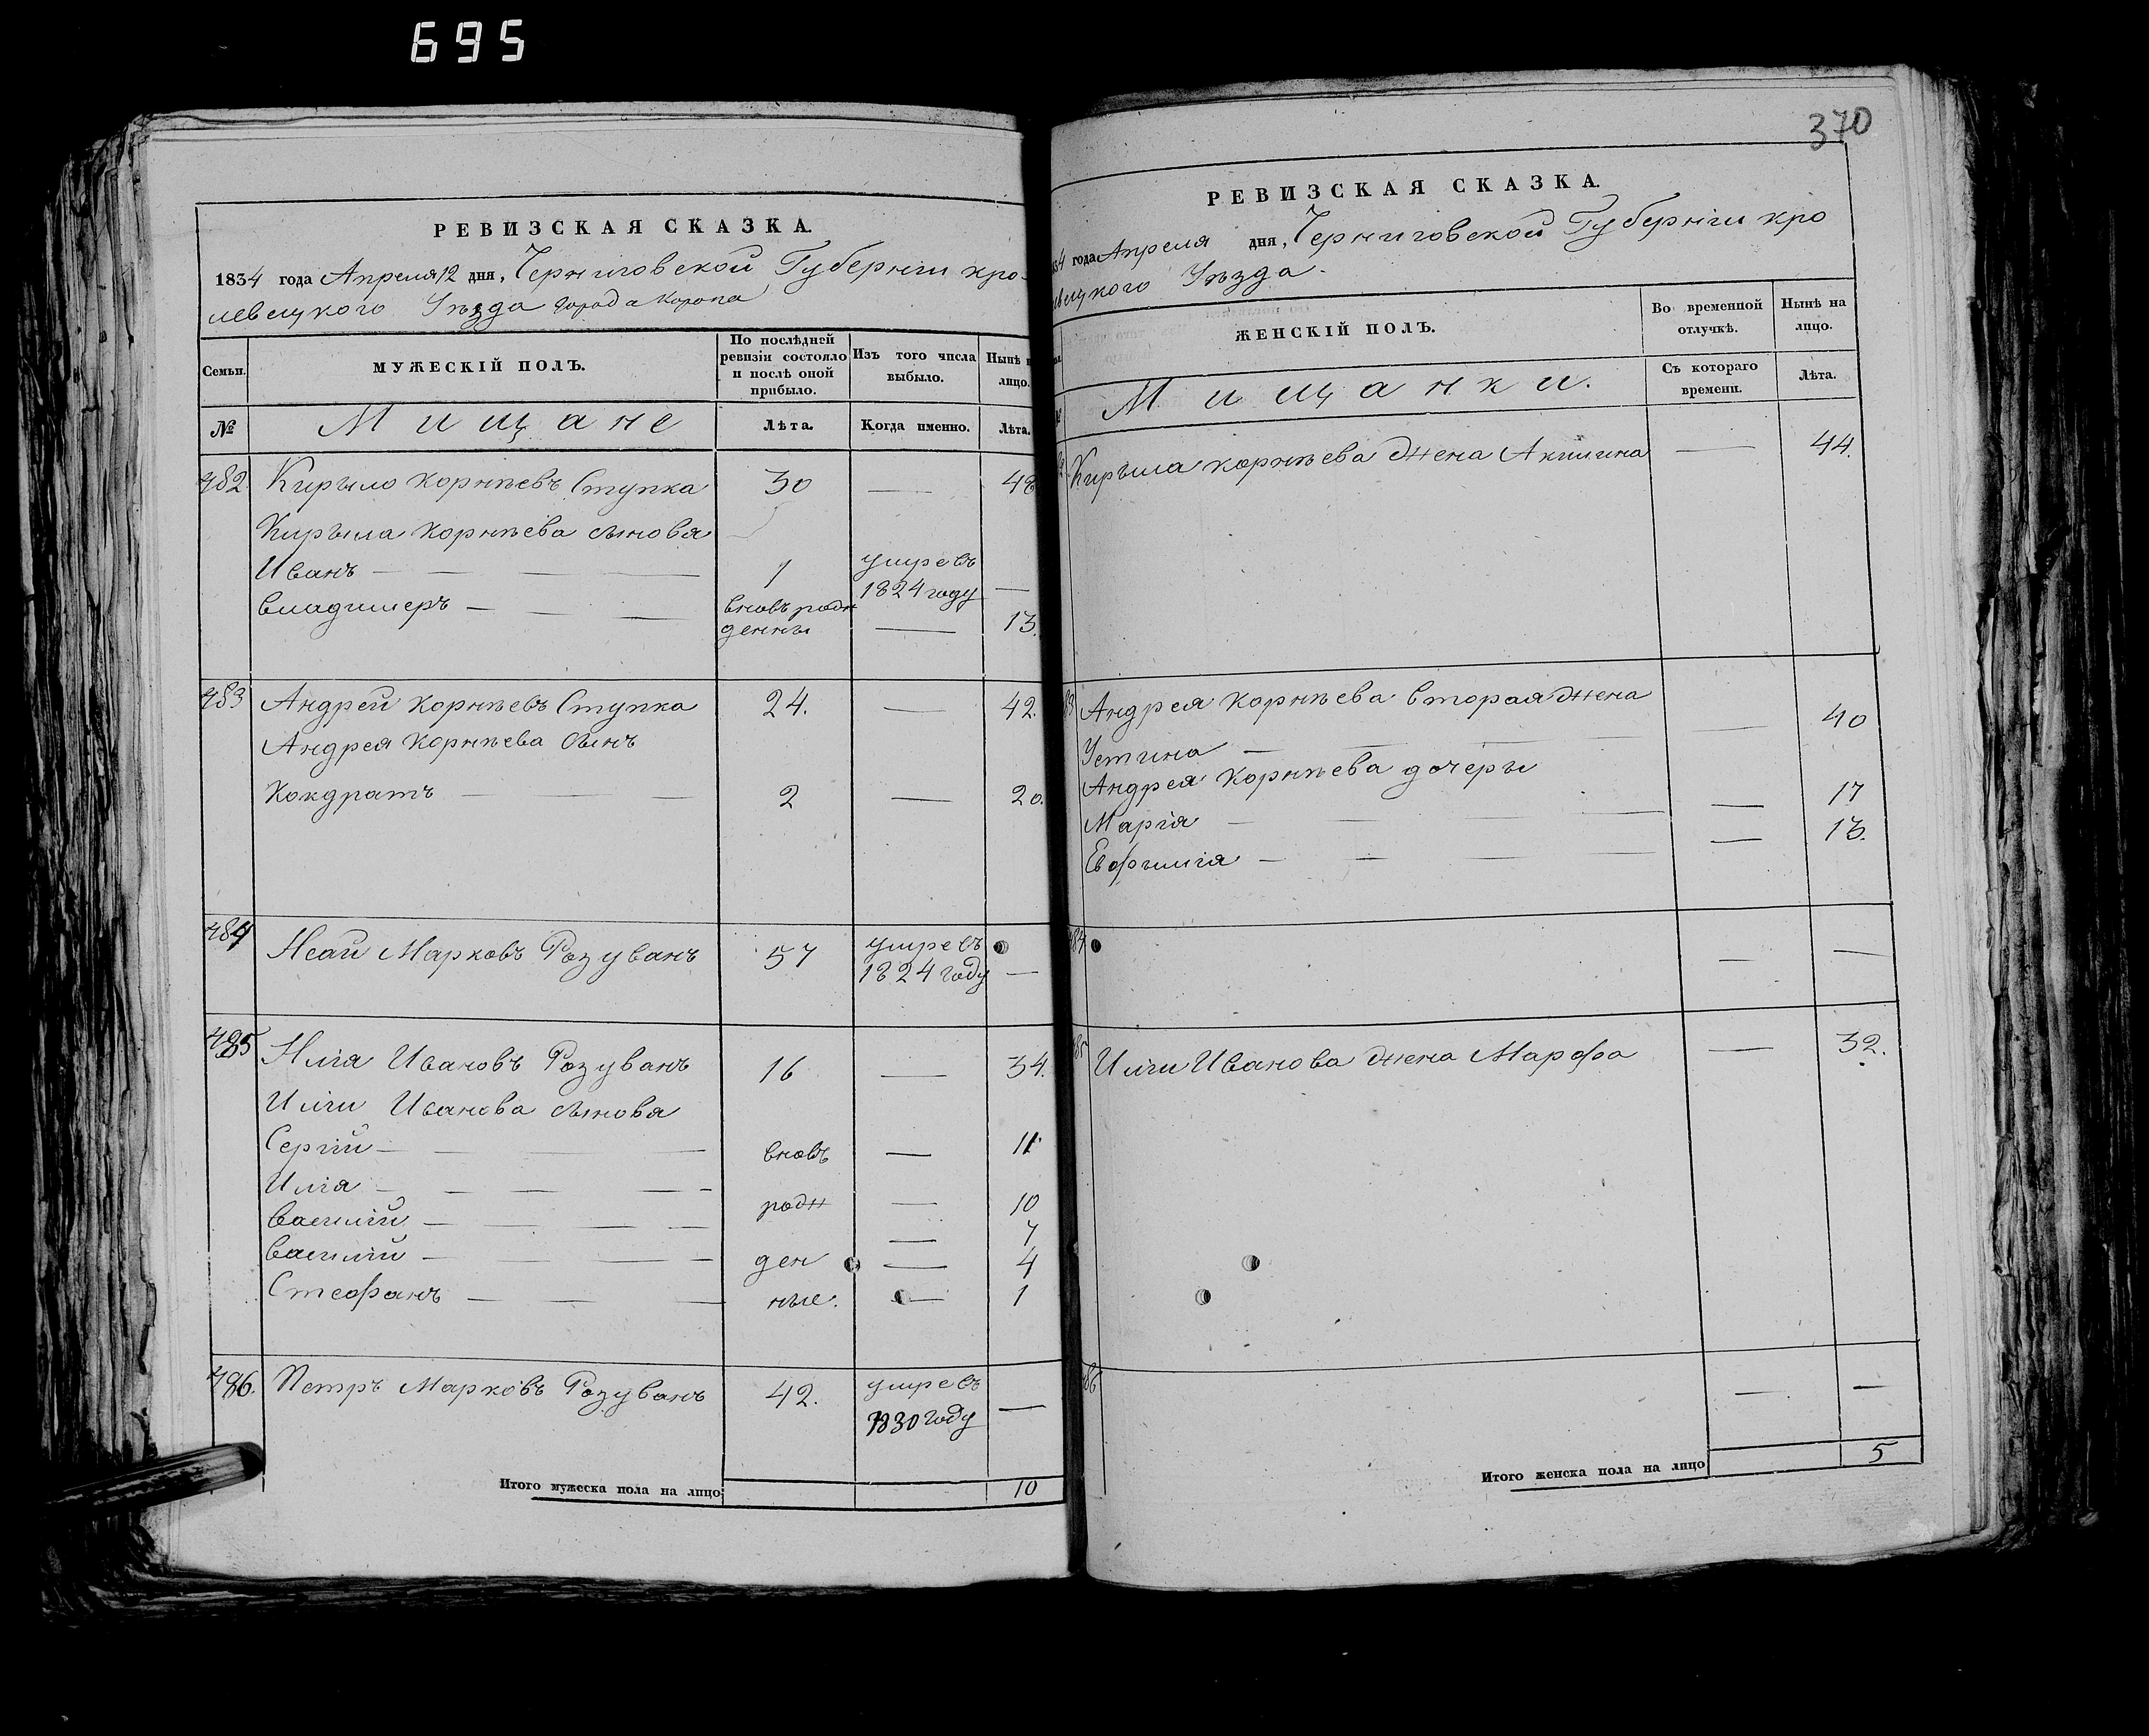 695
РЕВИЗСКАЯ СКАЗКА.
1834 года Апреля 12 дня, Черниговской Губерніи кро-
левецкого Уѣзда города Коропа
Семьи.
МУЖЕСКІЙ ПОЛЪ.
По послѣдней ревизіи состояло и послѣ оной прибыло.
Изъ того числа выбыло.
Нынѣ на лицо.
№
Мищане
Лѣта.
Когда именно.
Лѣта.
482 Кирыло Корнѣевъ Ступка 30 — 48
Кирыла Корнѣева сыновя
Иванъ — 1 умре въ 1824 году —
Владимеръ — вновь рожденны — 13.
483 Андрей Корнѣевъ Ступка 24. — 42.
Андрея Корнѣева сынъ
Кондратъ — 2 — 20.
484 Исай Марковъ Розуванъ 57 умре въ 1824 году —
485 Илія Ивановъ Розуванъ 16 — 34.
Иліи Иванова сынова
Сергій — вновь — 11
Илія — рож — 10
Василій — — 7
Василій — ден — 4
Стефанъ — ные. — 1
486. Петръ Марковъ Розуванъ 42. умре въ 1830 году —
Итого мужеска пола на лицо 10
370
РЕВИЗСКАЯ СКАЗКА.
34 года Апреля дня, Черниговской Губерніи кро
левецкого Уѣзда.
ЖЕНСКІЙ ПОЛЪ.
Во временной отлучкѣ.
Нынѣ на лицо.
Мищанки.
Съ котораго времени.
Лѣта.
Кирыла Корнѣева жена Акилина — 44.
83 Андрея Корнѣева вторая жена
Устина — — 40
Андрея Корнѣева дочеры
Марія — — 17
Евфимія — — 13.
484 — —
85 Иліи Иванова жена Марфа — 32.
86 — —
Итого женска пола на лицо 5